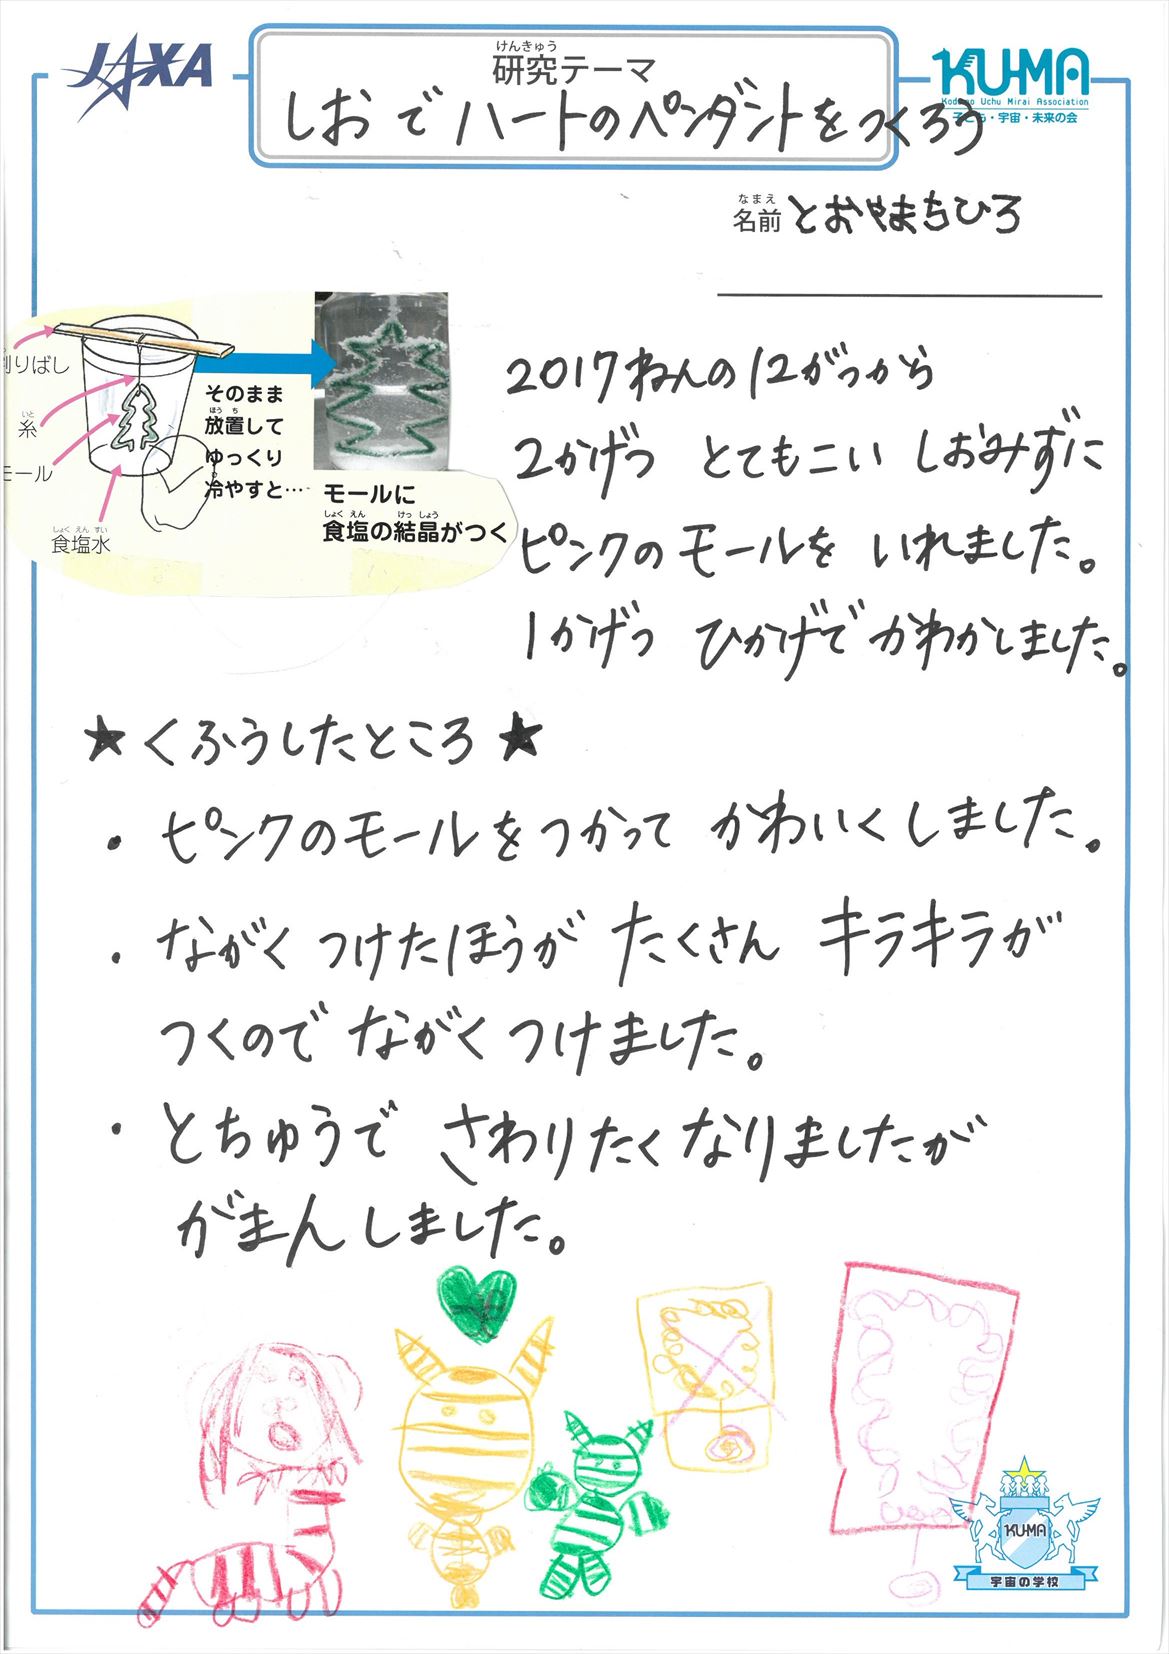 JAXA
けんきゅう
研究テーマ
しおでハートのペンダントをつくろう
KU-MA
Kodomo Uchu Mirai Association
子ども・宇宙・未来の会
なまえ
名前 とおやまちひろ
割りばし
いと
糸
モール
しょくえんすい
食塩水
そのまま
ほうち
放置して
ゆっくり
冷やすと…
モールに
しょくえん けっしょう
食塩の結晶がつく
2017ねんの12がつから
2かげつ とてもこい しおみずに
ピンクのモールを いれました。
1かげつ ひかげで かわかしました。
★くふうしたところ★
・ピンクのモールをつかって かわいくしました。
・ながく つけたほうが たくさん キラキラが
つくので ながく つけました。
・とちゅうで さわりたくなりましたが
がまんしました。
KU-MA
宇宙の学校